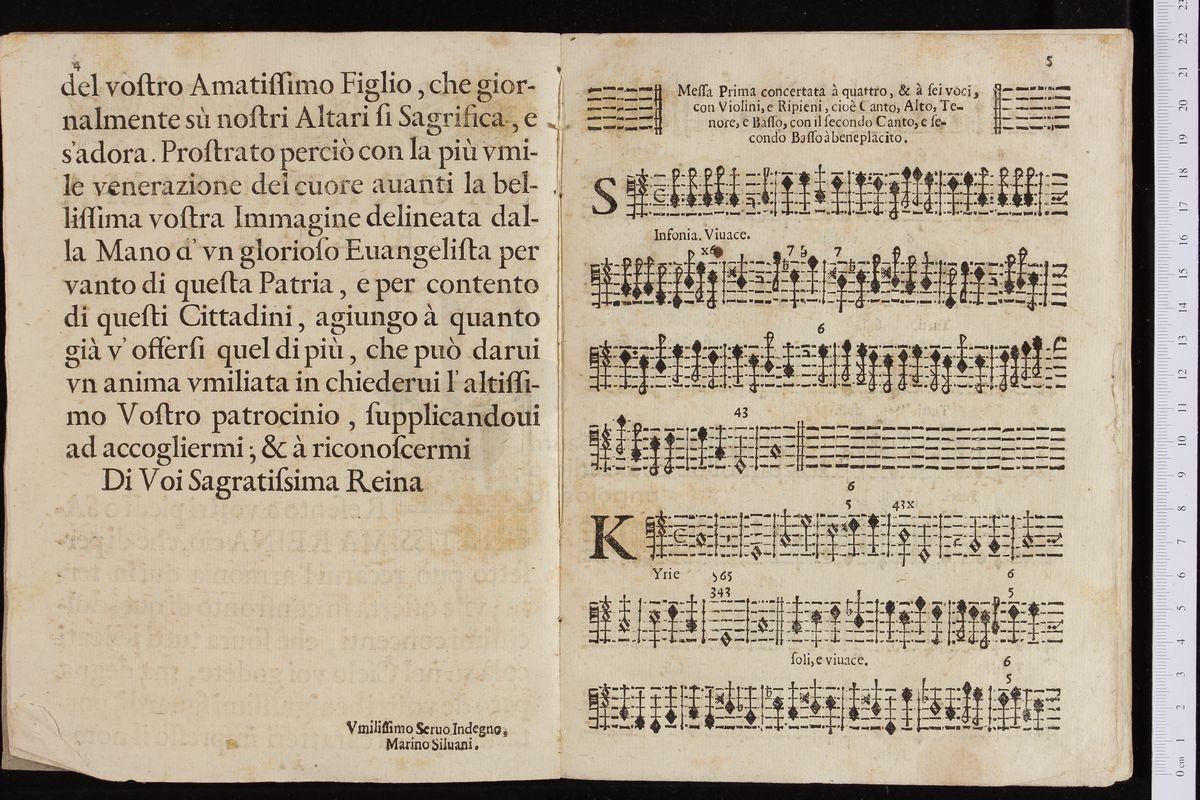 4
del voſtro Amatiſſimo Figlio, che gior-
nalmente sù noſtri Altari ſi Sagrifica, e
s'adora. Proſtrato perciò con la più vmi-
le venerazione del cuore auanti la bel-
liſſima voſtra Immagine delineata dal-
la Mano d'vn glorioſo Euangeliſta per
vanto di queſta Patria, e per contento
di queſti Cittadini, agiungo à quanto
già v'offerſi quel di più, che può darui
vn anima vmiliata in chiederui l'altiſſi-
mo Voſtro patrocinio, ſupplicandoui
ad accogliermi; & à riconoſcermi
Di Voi Sagratiſsima Reina
Vmiliſſimo Seruo Indegno,
Marino Siluani.
5
Meſſa Prima concertata à quattro, & à ſei voci,
con Violini, e Ripieni, cioè Canto, Alto, Te-
nore, e Baſſo, con il ſecondo Canto, e ſe-
condo Baſſo à beneplacito.
S
Infonia. Viuace.
x6 7 5 7
6
43
6
5 43x
K
Yrie
565 6
343 5
ſoli, e viuace.
6
5
0 cm 1 2 3 4 5 6 7 8 9 10 11 12 13 14 15 16 17 18 19 20 21 22 23